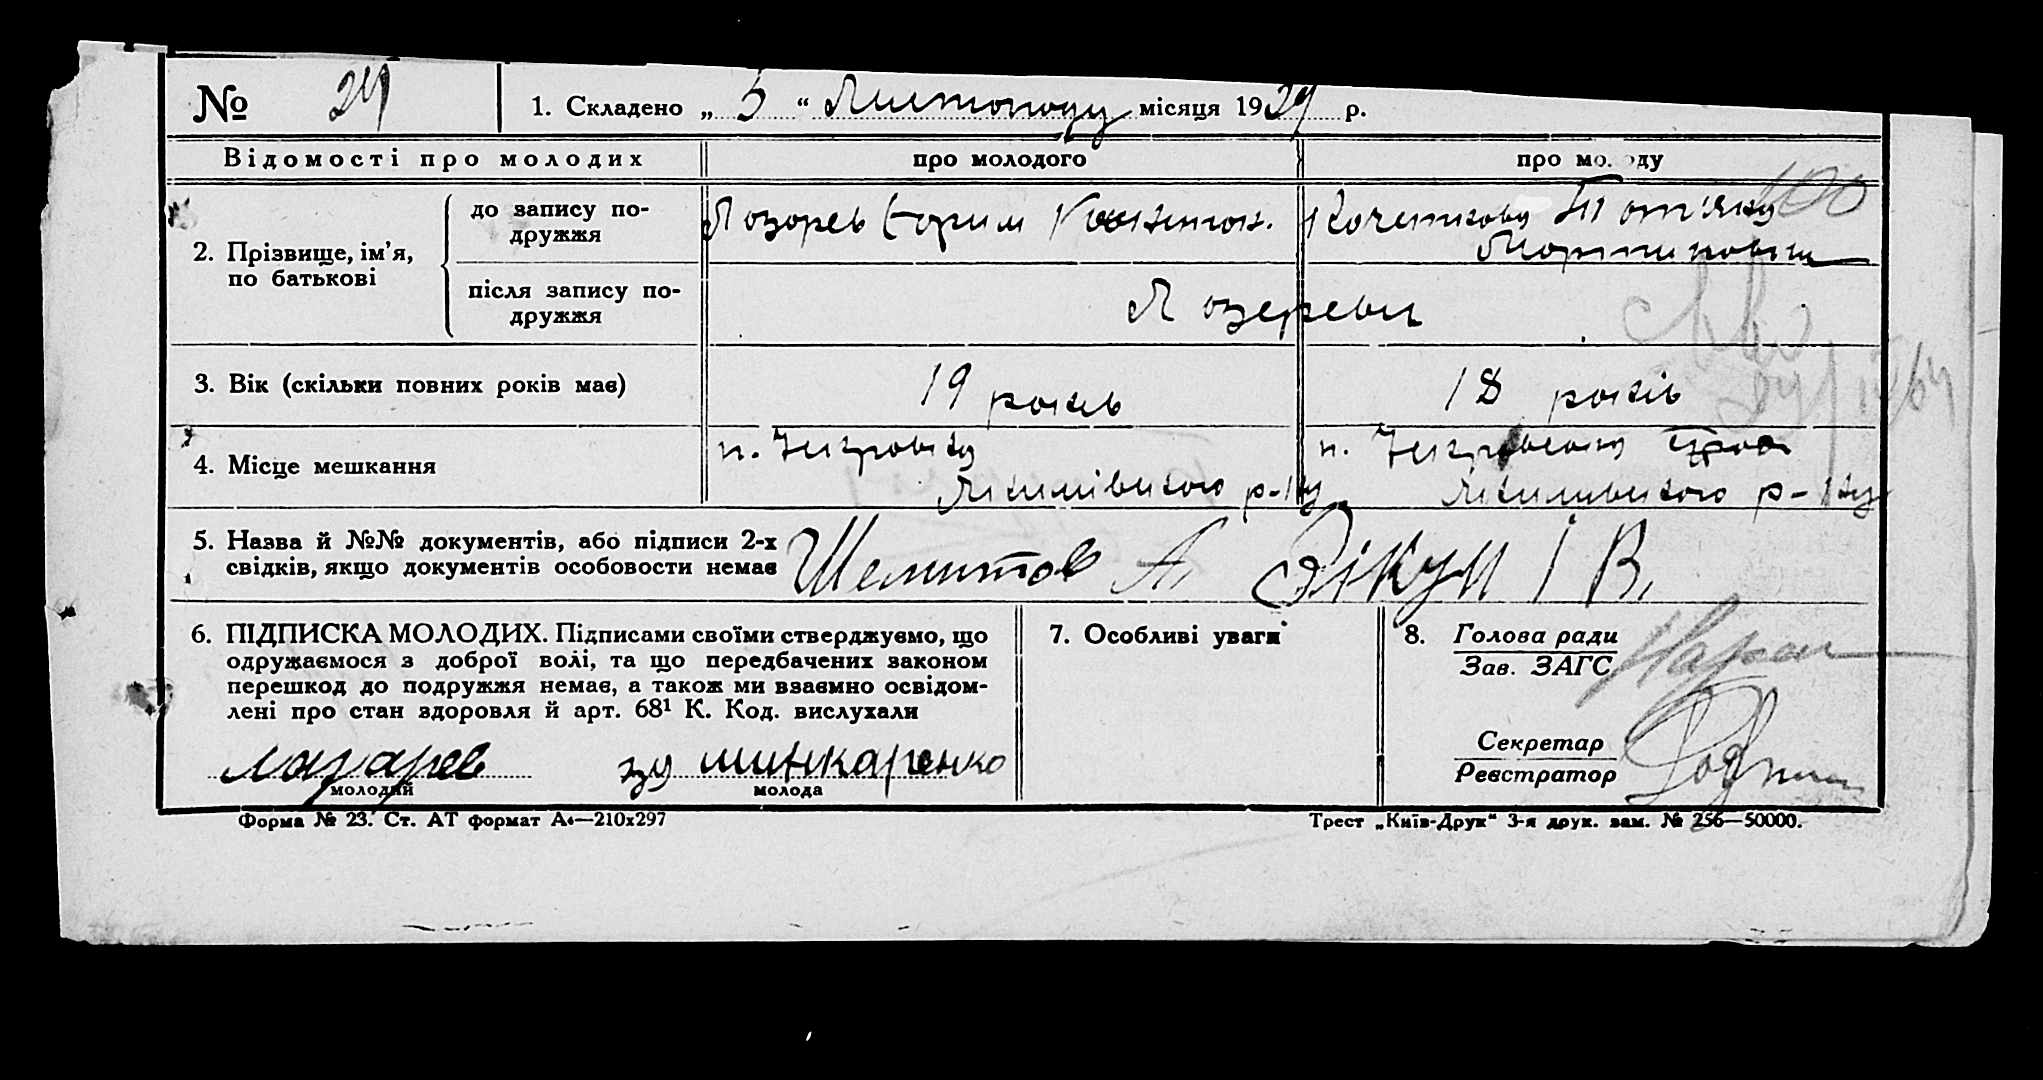 № 29
1. Складено „ 5 “ Листопаду місяця 1929 р.
Відомості про молодих
про молодого
про молоду
2. Прізвище, ім'я,
по батькові
до запису по-
дружжя
Лозорев
Кочеткову Тат'яну
400
після запису по-
дружжя
Лозореви
3. Вік (скільки повних років має)
19 років
18 років
4. Місце мешкання
п.
р-ну
п.
р-ну
5. Назва й №№ документів, або підписи 2-х
свідків, якщо документів особовости немає
Шемитов А. Дікун І В.
6. ПІДПИСКА МОЛОДИХ. Підписами своїми стверджуємо, що
одружаємося з доброї волі, та що передбачених законом
перешкод до подружжя немає, а також ми взаємно освідом-
лені про стан здоровля й арт. 68¹ К. Код. вислухали
лазарев
молодий
зу шинкаренко
молода
7. Особливі уваги
8. Голова ради
Зав. ЗАГС
Секретар
Реєстратор
Форма № 23. Ст. АТ формат А₄—210х297
Трест „Київ-Друк“ 3-я друк. зам. № 256—50000.